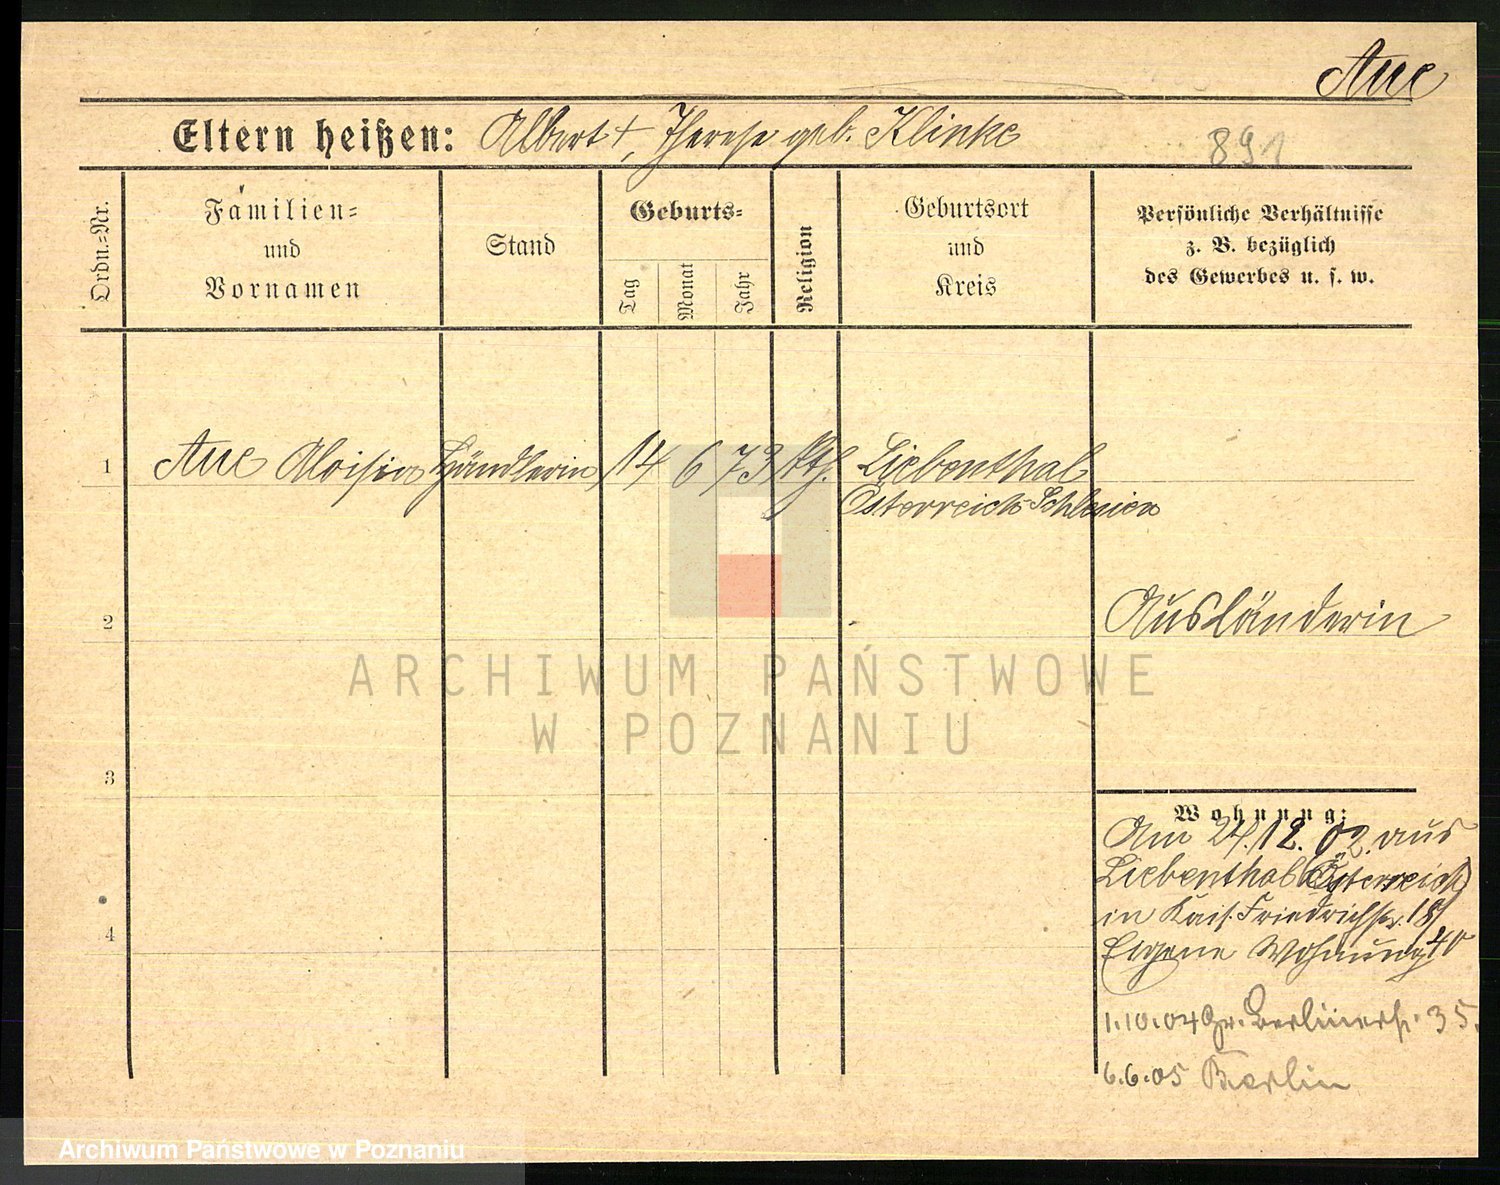 Aue
Eltern heißen: Albert +, Therese geb. Klinke
891
Ordn.-Nr.
Familien-
und
Vornamen
Stand
Geburts-
Tag
Monat
Jahr
Religion
Geburtsort
und
Kreis
Persönliche Verhältnisse
z. B. bezüglich
des Gewerbes u. s. w.
1 Aue Aloisia Händlerin 14 6 73 kth. Liebenthal
Österreich-Schlesien
2 Ausländerin
ARCHIWUM PAŃSTWOWE
W POZNANIU
3
Wohnung:
Am 24.12.02. aus
Liebenthal (Österreich)
in Kais. Friedrichstr. 18/
4
Eigene Wohnung 40
1.10.04 Gr. Berlinerstr. 35.
6.6.05 Berlin
Archiwum Państwowe w Poznaniu